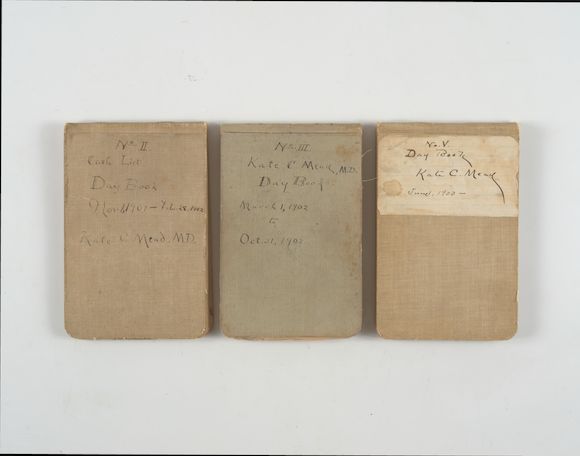 No. II
Cash List
Day Book
Nov. 1, 1901 – Feb. 28, 1902
Kate C Mead, M.D.
No. III.
Kate C Mead, M.D.
Day Book
March 1, 1902
to
Oct. 31, 1902
No. V.
Day Book
Kate C. Mead
June,